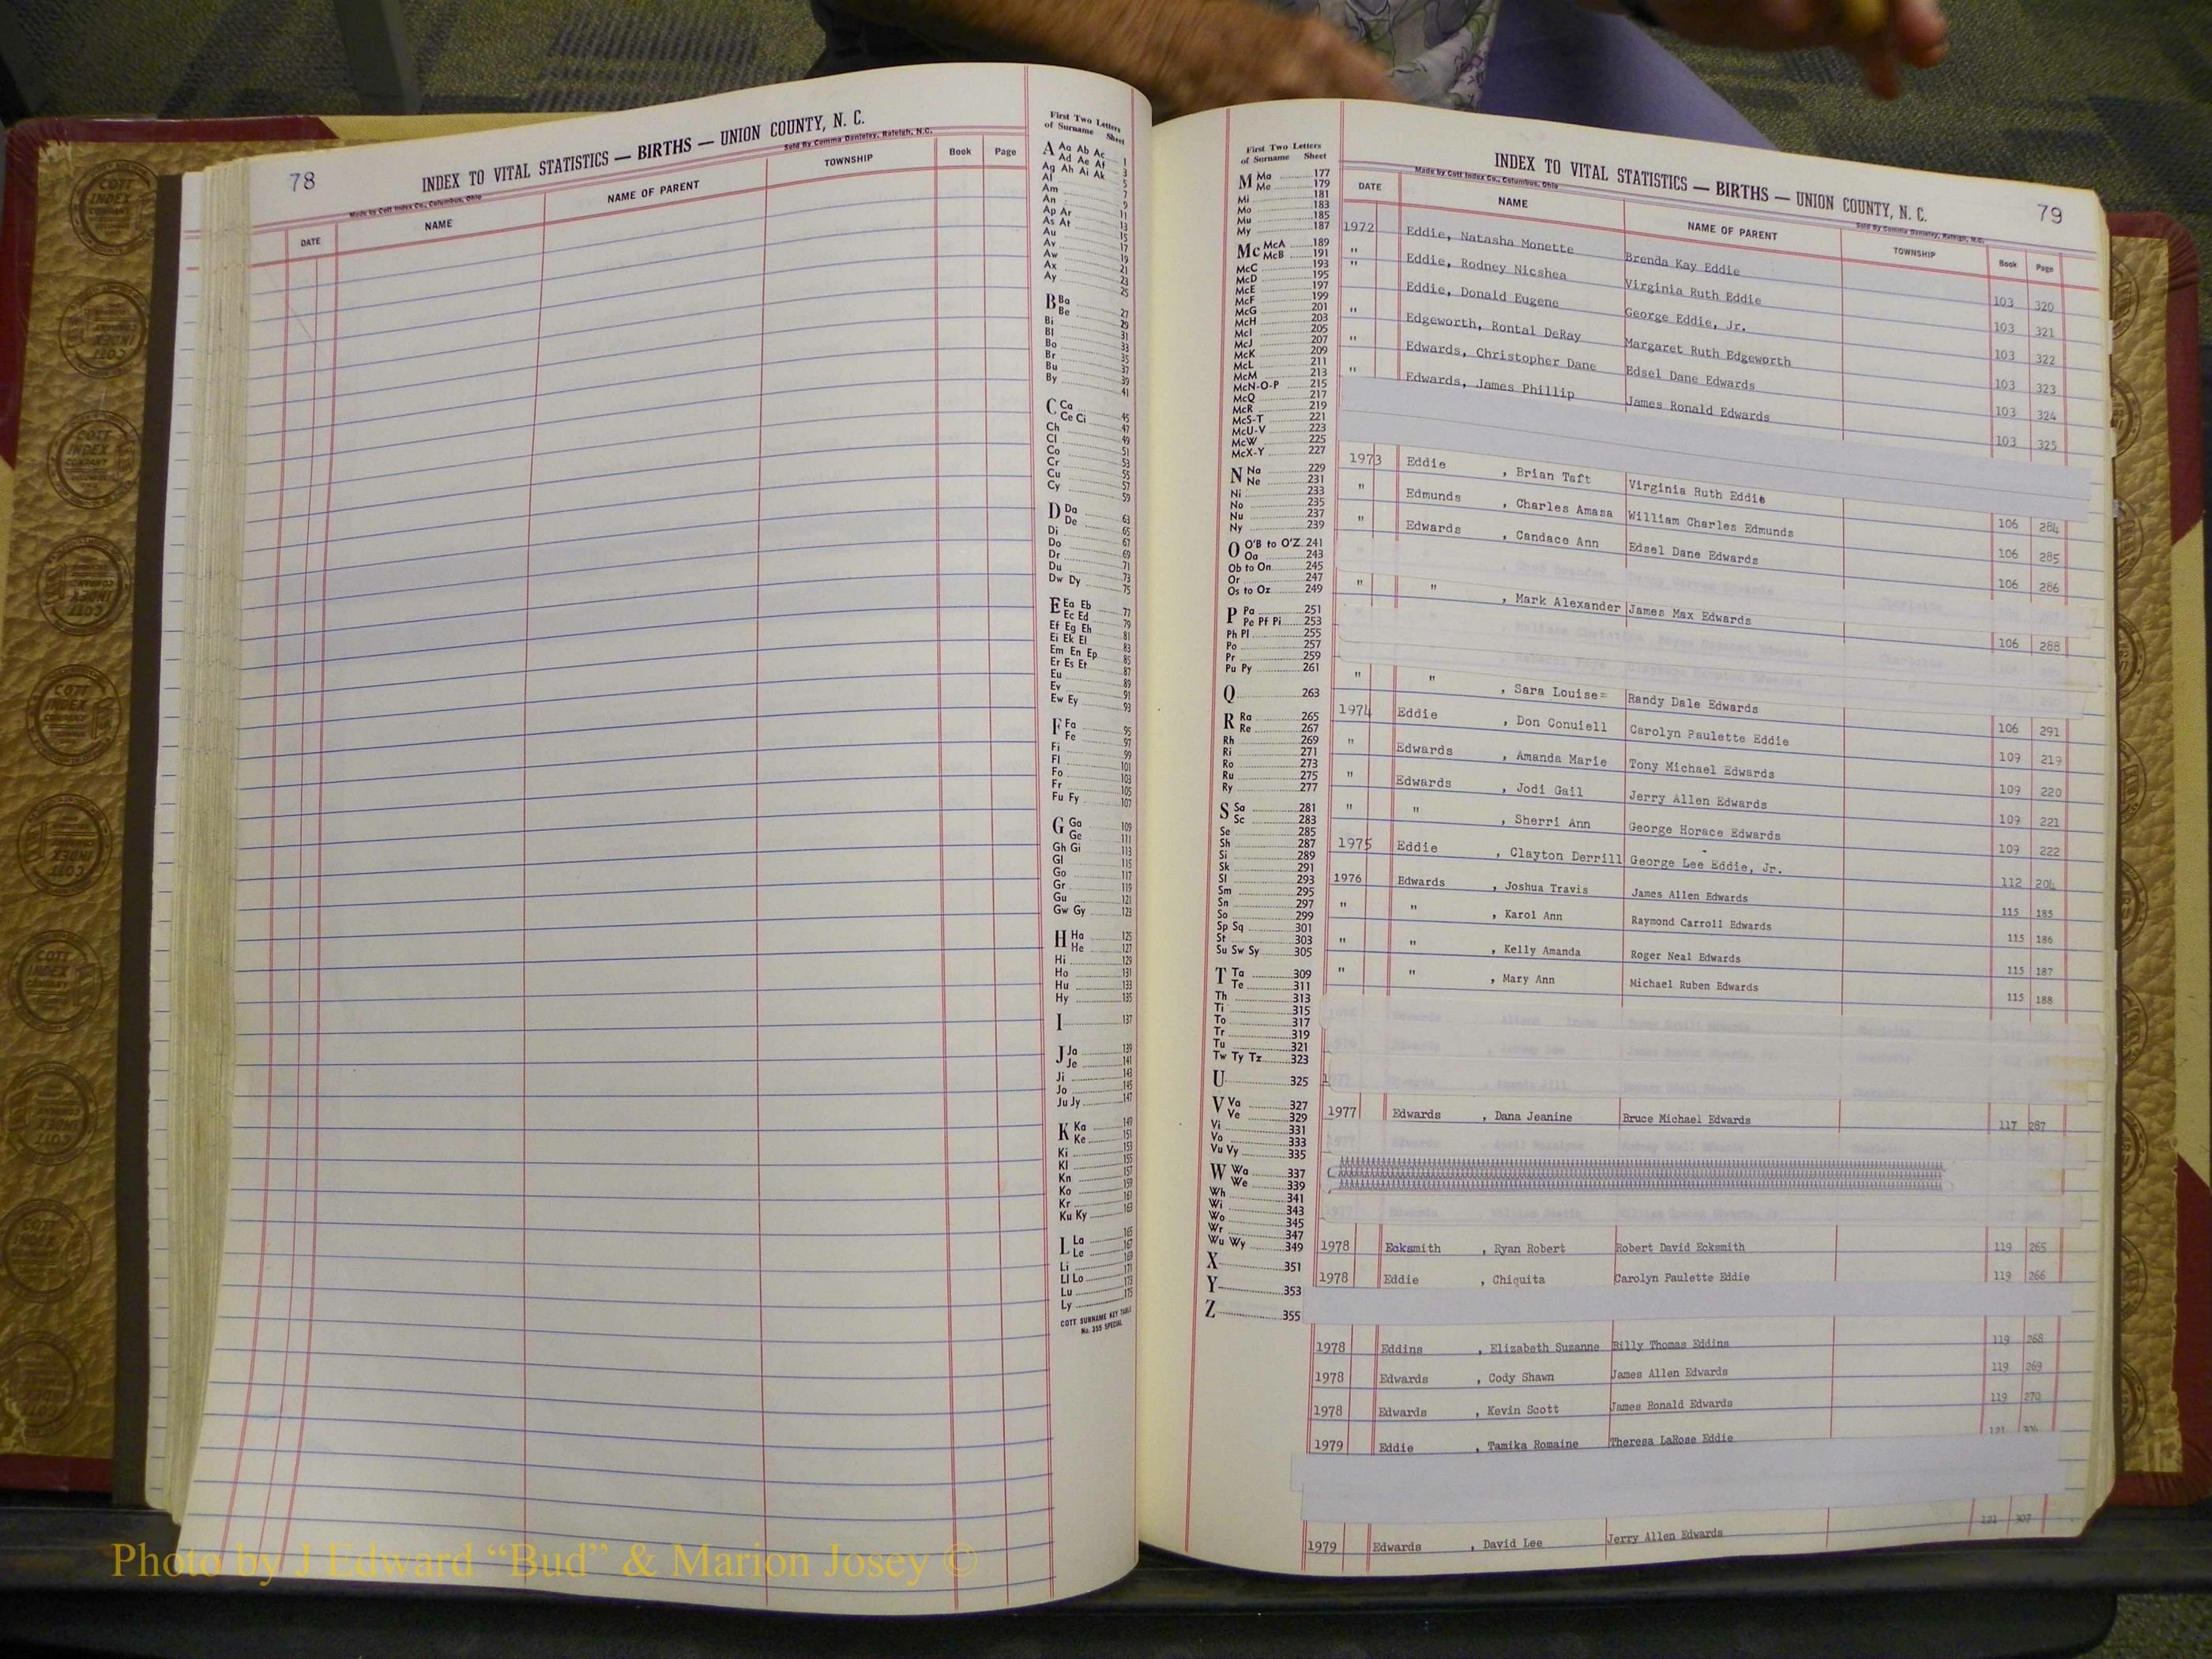 78
INDEX TO VITAL STATISTICS — BIRTHS — UNION COUNTY, N. C.
Made by Cott Index Co., Columbus, Ohio
DATE NAME NAME OF PARENT TOWNSHIP Book Page
First Two Letters
of Surname Sheet
A Aa Ab Ac 1
Ad Ae Af 3
Ag Ah Ai Ak 5
Al 7
Am 9
An 11
Ap Ar 13
As At 15
Au 17
Av 19
Aw 21
Ax 23
Ay 25
B Ba 27
Be 29
Bi 31
Bl 33
Bo 35
Br 37
Bu 39
By 41
C Ca 45
Ce Ci 47
Ch 49
Cl 51
Co 53
Cr 55
Cu 57
Cy 59
D Da 63
De 65
Di 67
Do 69
Dr 71
Du 73
Dw Dy 75
E Ea Eb 77
Ec Ed 79
Ef Eg Eh 81
Ei Ek El 83
Em En Ep 85
Er Es Et 87
Eu 89
Ev 91
Ew Ey 93
F Fa 95
Fe 97
Fi 99
Fl 101
Fo 103
Fr 105
Fu Fy 107
G Ga 109
Ge 111
Gh Gi 113
Gl 115
Go 117
Gr 119
Gu 121
Gw Gy 123
H Ha 125
He 127
Hi 129
Ho 131
Hu 133
Hy 135
I 137
J Ja 139
Je 141
Ji 143
Jo 145
Ju Jy 147
K Ka 149
Ke 151
Ki 153
Kl 155
Kn 157
Ko 159
Kr 161
Ku Ky 163
L La 165
Le 167
Li 169
Ll Lo 171
Lu 173
Ly 175
COTT SURNAME KEY TABLE
No. 355 SPECIAL
First Two Letters
of Surname Sheet
M Ma 177
Me 179
Mi 181
Mo 183
Mu 185
My 187
Mc McA 189
McB 191
McC 193
McD 195
McE 197
McF 199
McG 201
McH 203
McI 205
McJ 207
McK 209
McL 211
McM 213
McN-O-P 215
McQ 217
McR 219
McS-T 221
McU-V 223
McW 225
McX-Y 227
N Na 229
Ne 231
Ni 233
No 235
Nu 237
Ny 239
O O'B to O'Z 241
Oa 243
Ob to On 245
Or 247
Os to Oz 249
P Pa 251
Pe Pf Pi 253
Ph Pl 255
Po 257
Pr 259
Pu Py 261
Q 263
R Ra 265
Re 267
Rh 269
Ri 271
Ro 273
Ru 275
Ry 277
S Sa 281
Sc 283
Se 285
Sh 287
Si 289
Sk 291
Sl 293
Sm 295
Sn 297
So 299
Sp Sq 301
St 303
Su Sw Sy 305
T Ta 309
Te 311
Th 313
Ti 315
To 317
Tr 319
Tu 321
Tw Ty Tz 323
U 325
V Va 327
Ve 329
Vi 331
Vo 333
Vu Vy 335
W Wa 337
We 339
Wh 341
Wi 343
Wo 345
Wr 347
Wu Wy 349
X 351
Y 353
Z 355
79
INDEX TO VITAL STATISTICS — BIRTHS — UNION COUNTY, N. C.
Made by Cott Index Co., Columbus, Ohio
DATE NAME NAME OF PARENT TOWNSHIP Book Page
1972 Eddie, Natasha Monette Brenda Kay Eddie 103 320
" Eddie, Rodney Nicshea Virginia Ruth Eddie 103 321
" Eddie, Donald Eugene George Eddie, Jr. 103 322
" Edgeworth, Rontal DeRay Margaret Ruth Edgeworth 103 323
" Edwards, Christopher Dane Edsel Dane Edwards 103 324
" Edwards, James Phillip James Ronald Edwards 103 325
1973 Eddie , Brian Taft Virginia Ruth Eddie 106 284
" Edmunds , Charles Amasa William Charles Edmunds 106 285
" Edwards , Candace Ann Edsel Dane Edwards 106 286
" " , Mark Alexander James Max Edwards 106 288
" " , Sara Louise= Randy Dale Edwards 106 291
1974 Eddie , Don Conuiell Carolyn Paulette Eddie 109 219
" Edwards , Amanda Marie Tony Michael Edwards 109 220
" Edwards , Jodi Gail Jerry Allen Edwards 109 221
" " , Sherri Ann George Horace Edwards 109 222
1975 Eddie , Clayton Derrill George Lee Eddie, Jr. 112 204
1976 Edwards , Joshua Travis James Allen Edwards 115 185
" " , Karol Ann Raymond Carroll Edwards 115 186
" " , Kelly Amanda Roger Neal Edwards 115 187
" " , Mary Ann Michael Ruben Edwards 115 188
1977 Edwards , Dana Jeanine Bruce Michael Edwards 117 287
1978 Ecksmith , Ryan Robert Robert David Ecksmith 119 265
1978 Eddie , Chiquita Carolyn Paulette Eddie 119 266
1978 Eddins , Elizabeth Suzanne Billy Thomas Eddins 119 268
1978 Edwards , Cody Shawn James Allen Edwards 119 269
1978 Edwards , Kevin Scott James Ronald Edwards 119 270
1979 Eddie , Tamika Romaine Theresa LaRose Eddie 121
1979 Edwards , David Lee Jerry Allen Edwards 121 307
Photo by J Edward “Bud” & Marion Josey ©